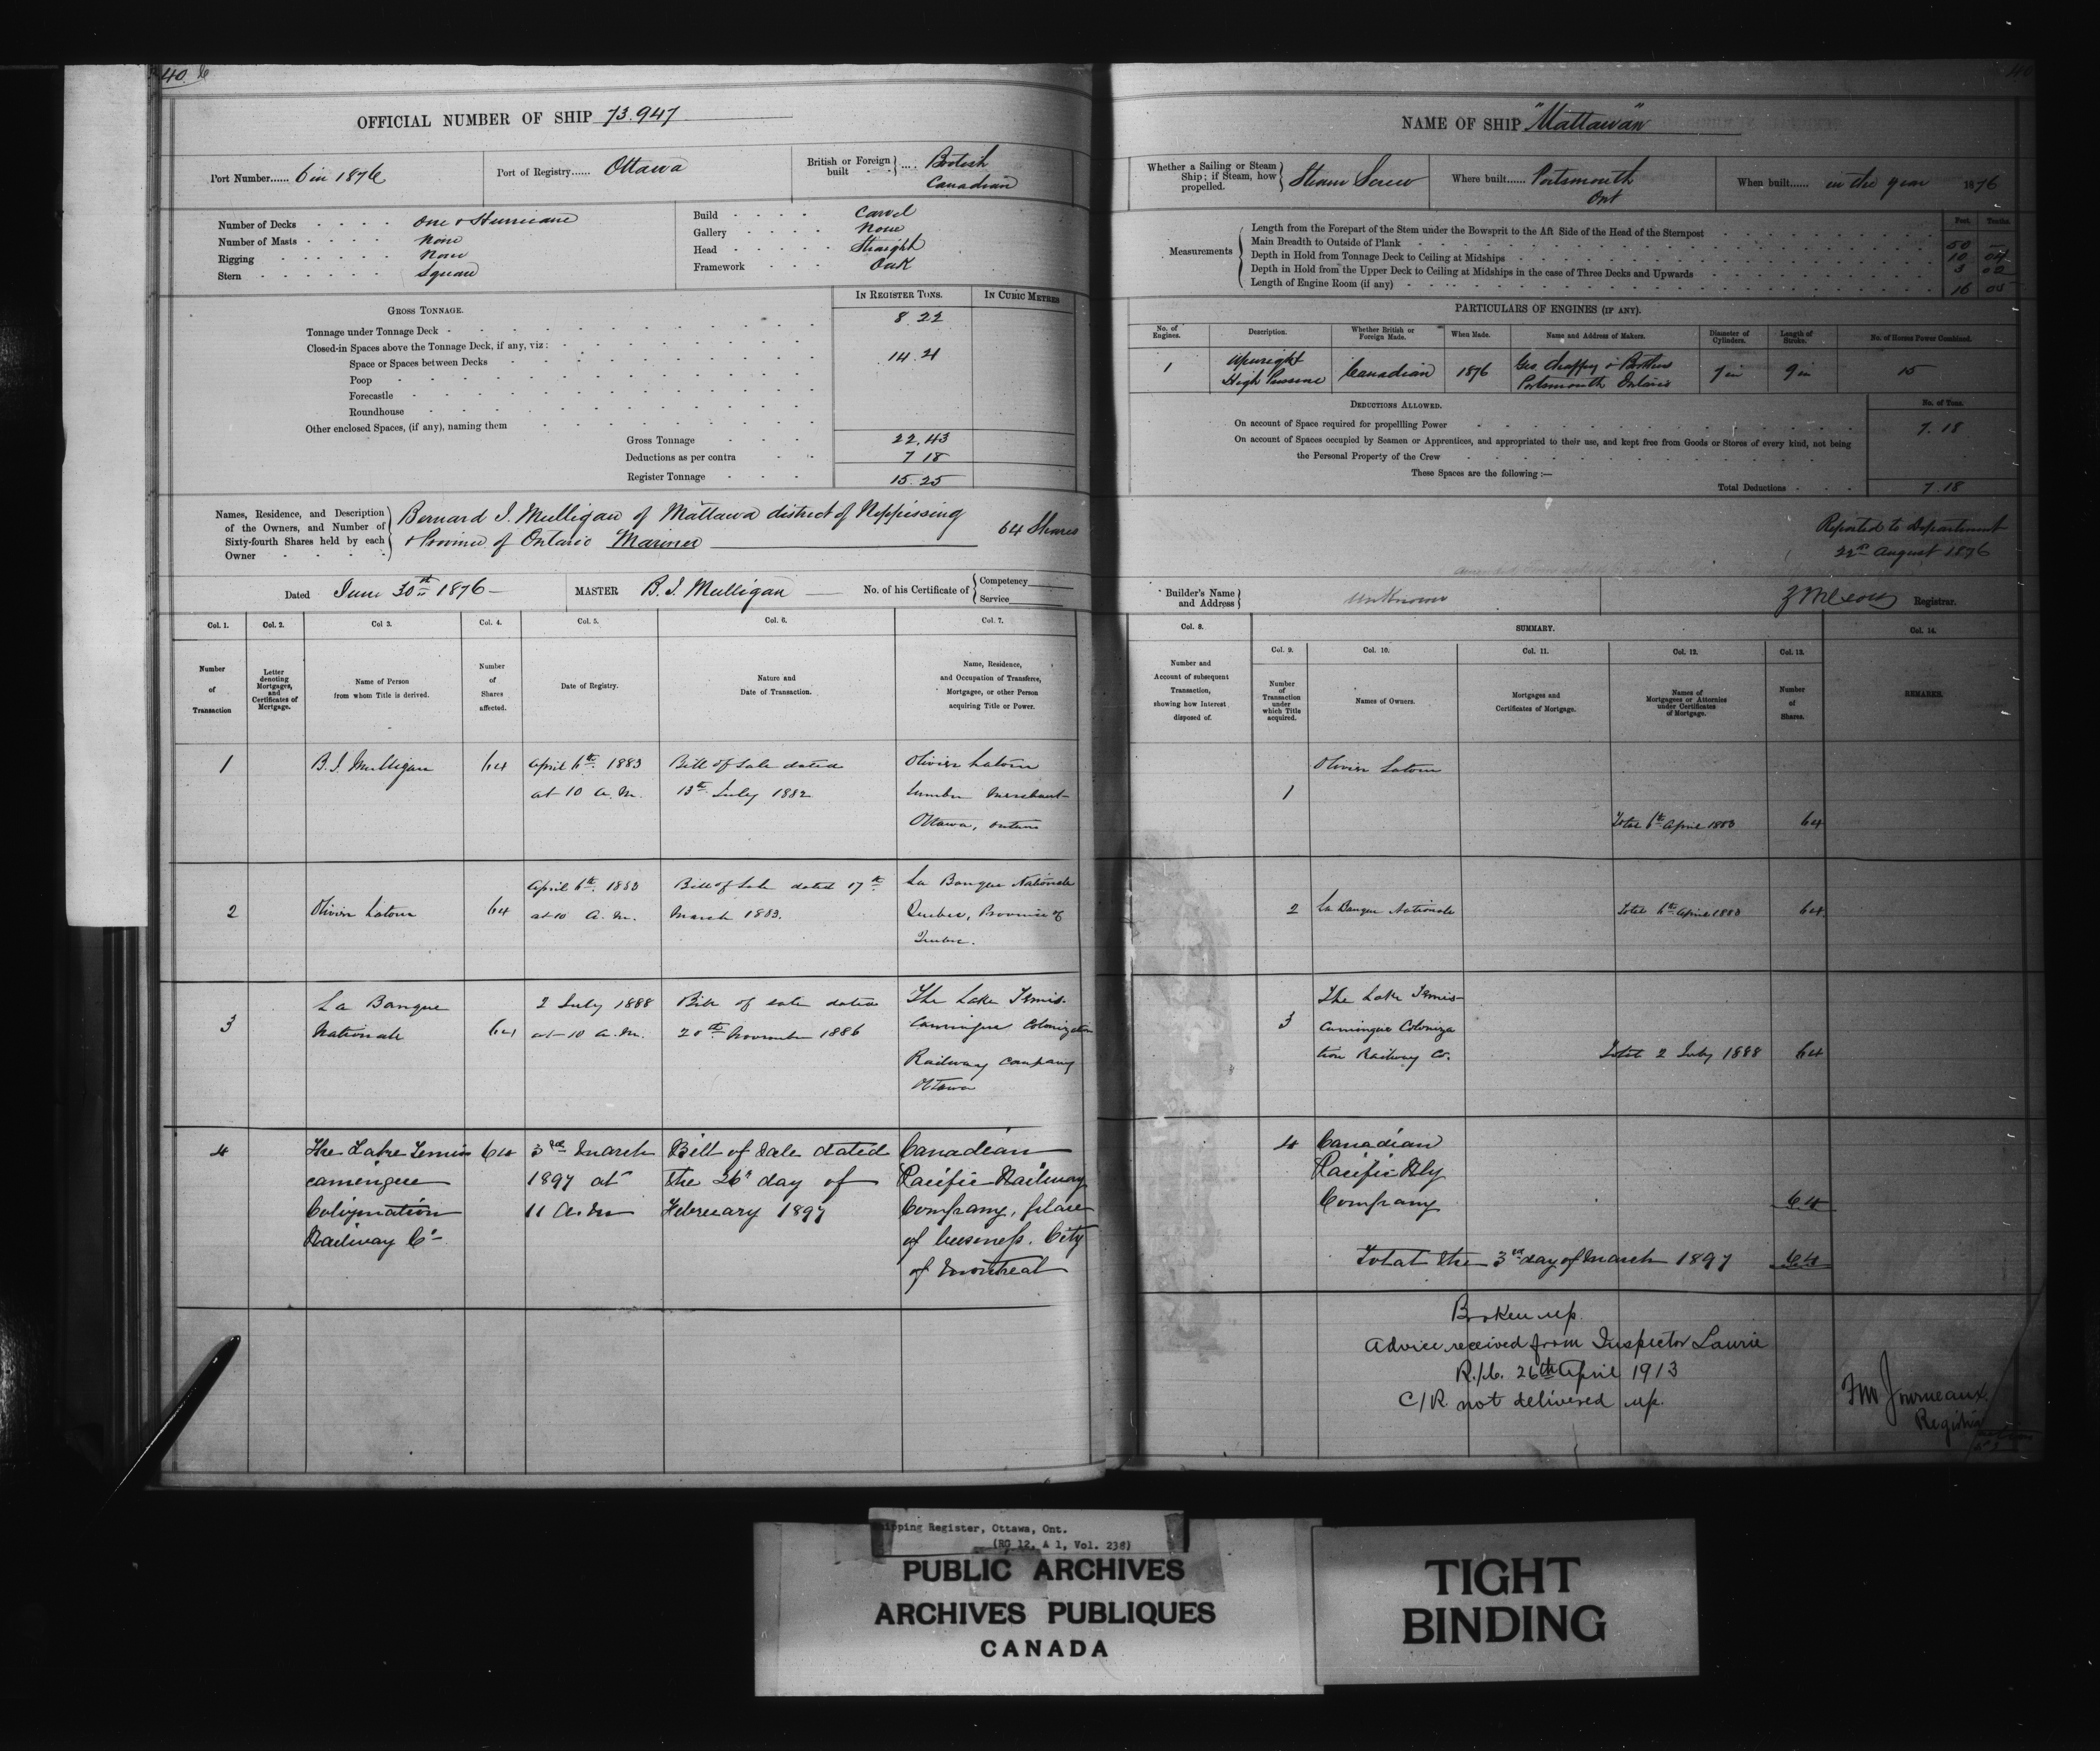 40
OFFICIAL NUMBER OF SHIP 73.947
Port Number...... 6 in 1876
Port of Registry...... Ottawa
British or Foreign built .... British Canadian
Number of Decks One & Hurricane
Number of Masts None
Rigging None
Stern Square
Build Carvel
Gallery None
Head Straight
Framework Oak
GROSS TONNAGE.
IN REGISTER TONS.
IN CUBIC METRES
Tonnage under Tonnage Deck - 8.22
Closed-in Spaces above the Tonnage Deck, if any, viz:
Space or Spaces between Decks 14.21
Poop
Forecastle
Roundhouse
Other enclosed Spaces, (if any), naming them
Gross Tonnage 22.43
Deductions as per contra 7 18
Register Tonnage 15.25
Names, Residence, and Description
of the Owners, and Number of
Sixty-fourth Shares held by each
Owner
Bernard I. Mulligan of Mattawa district of Nippissing
& Province of Ontario Mariner
64 Shares
Dated June 30th 1876
MASTER B. I. Mulligan
No. of his Certificate of Competency Service
Col. 1. Col. 2. Col 3. Col. 4. Col. 5. Col. 6. Col. 7.
Number of Transaction
Letter denoting Mortgages, and Certificates of Mortgage.
Name of Person from whom Title is derived.
Number of Shares affected.
Date of Registry.
Nature and Date of Transaction.
Name, Residence, and Occupation of Transferee, Mortgagee, or other Person acquiring Title or Power.
1 B. I. Mulligan 64 April 6th 1883 Bill of Sale dated Olivier Latour
at 10 A.M. 13th July 1882 Lumber Merchant
Ottawa, Ontario
April 6th 1883 Bill of Sale dated 17th La Banque Nationale
2 Olivier Latour 64 at 10 A.M. March 1883. Quebec, Province of
Quebec.
La Banque 2 July 1888 Bill of sale dated The Lake Temis-
3 Nationale 64 at 10 A.M. 20th November 1886 camingue Colonization
Railway Company
Ottawa
4 The Lake Temis 64 3rd March Bill of Sale dated Canadian
camingue 1897 at the 26th day of Pacific Railway
Colonization 11 A.M February 1897 Company, place
Railway Co of business. City
of Montreal
NAME OF SHIP "Mattawan"
Whether a Sailing or Steam Ship; if Steam, how propelled. Steam Screw
Where built...... Portsmouth Ont
When built...... in the year 1876
Measurements
Feet. Tenths.
Length from the Forepart of the Stem under the Bowsprit to the Aft Side of the Head of the Sternpost 50 -
Main Breadth to Outside of Plank 10 04
Depth in Hold from Tonnage Deck to Ceiling at Midships 3 02
Depth in Hold from the Upper Deck to Ceiling at Midships in the case of Three Decks and Upwards
Length of Engine Room (if any) 16 05
PARTICULARS OF ENGINES (IF ANY).
No. of Engines. Description. Whether British or Foreign Made. When Made. Name and Address of Makers. Diameter of Cylinders. Length of Stroke. No. of Horses Power Combined.
1 Upright High Pressure Canadian 1876 Geo. Chaffey & Brothers Portsmouth Ontario 7 in 9 in 15
DEDUCTIONS ALLOWED.
No. of Tons.
On account of Space required for propellling Power 7.18
On account of Spaces occupied by Seamen or Apprentices, and appropriated to their use, and kept free from Goods or Stores of every kind, not being
the Personal Property of the Crew
These Spaces are the following:—
Total Deductions 7.18
Reported to Department
22nd August 1876
Builder's Name and Address Unknown
Registrar.
Col. 8. SUMMARY. Col. 14.
Col. 9. Col. 10. Col. 11. Col. 12. Col. 13.
Number and Account of subsequent Transaction, showing how Interest disposed of.
Number of Transaction under which Title acquired.
Names of Owners.
Mortgages and Certificates of Mortgage.
Names of Mortgagees or Attornies under Certificates of Mortgage.
Number of Shares.
REMARKS.
Olivier Latour
1
Total 6th April 1883 64
2 La Banque Nationale Total 6th April 1883 64
The Lake Temis-
3 camingue Coloniza
tion Railway Co. Total 2 July 1888 64
4 Canadian
Pacific Rly
Company 64
Total the 3rd day of March 1897 64
Broken up.
Advice received from Inspector Laurie
26th April 1913
C/R not delivered up.
Journeaux
Registrar
Shipping Register, Ottawa, Ont.
(RG 12, A 1, Vol. 238)
PUBLIC ARCHIVES
ARCHIVES PUBLIQUES
CANADA
TIGHT
BINDING